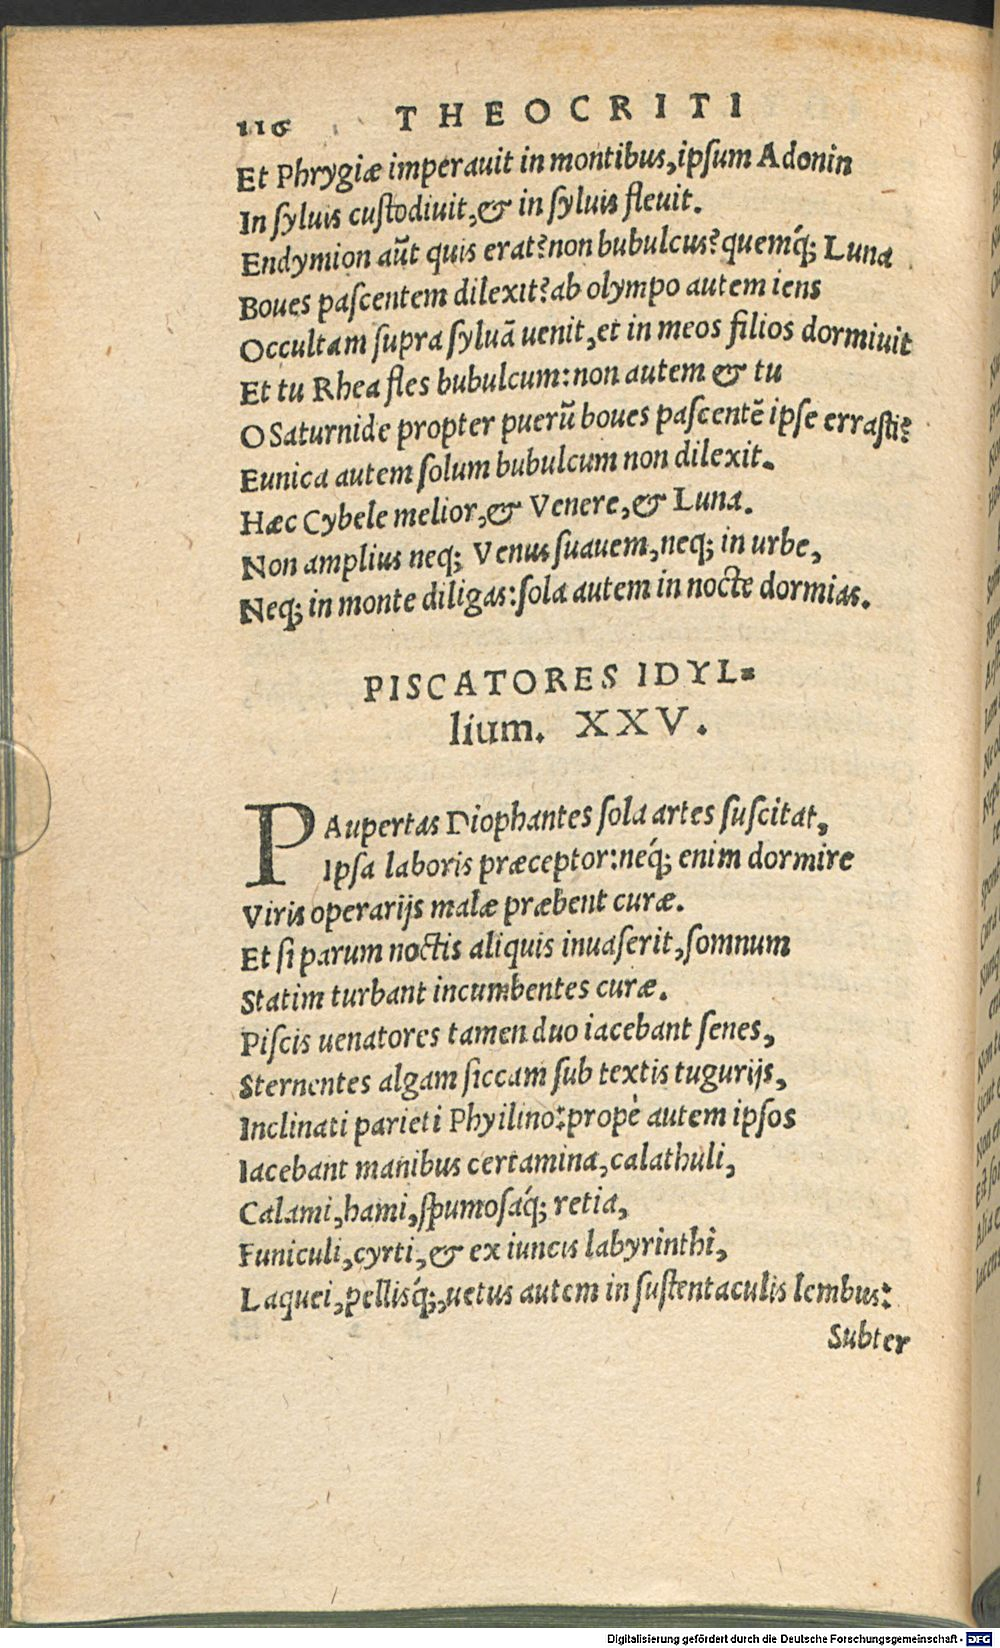 116 THEOCRITI
Et Phrygiæ imperauit in montibus, ipſum Adonin
In ſyluis cuſtodiuit, & in ſyluis fleuit.
Endymion aūt quis erat? non bubulcus? quemq́; Luna
Boues paſcentem dilexit? ab olympo autem iens
Occultam ſupra ſyluã uenit, et in meos filios dormiuit
Et tu Rhea fles bubulcum: non autem & tu
O Saturnide propter puerũ boues paſcentẽ ipſe erraſti?
Eunica autem ſolum bubulcum non dilexit.
Hæc Cybele melior, & Venere, & Luna.
Non amplius neq; Venus ſuauem, neq; in urbe,
Neq; in monte diligas: ſola autem in nocte dormias.
PISCATORES IDYL=
lium. XXV.
PAupertas Diophantes ſola artes ſuſcitat,
Ipſa laboris præceptor: neq́; enim dormire
Viris operarijs malæ præbent curæ.
Et ſi parum noctis aliquis inuaſerit, ſomnum
Statim turbant incumbentes curæ.
Piſcis uenatores tamen duo iacebant ſenes,
Sternentes algam ſiccam ſub textis tugurijs,
Inclinati parieti Phyilino: propè autem ipſos
Iacebant manibus certamina, calathuli,
Calami, hami, ſpumoſaq́; retia,
Funiculi, cyrti, & ex iuncis labyrinthi,
Laquei, pelliſq́;, uetus autem in ſuſtentaculis lembus:
Subter
Digitalisierung gefördert durch die Deutsche Forschungsgemeinschaft - DFG